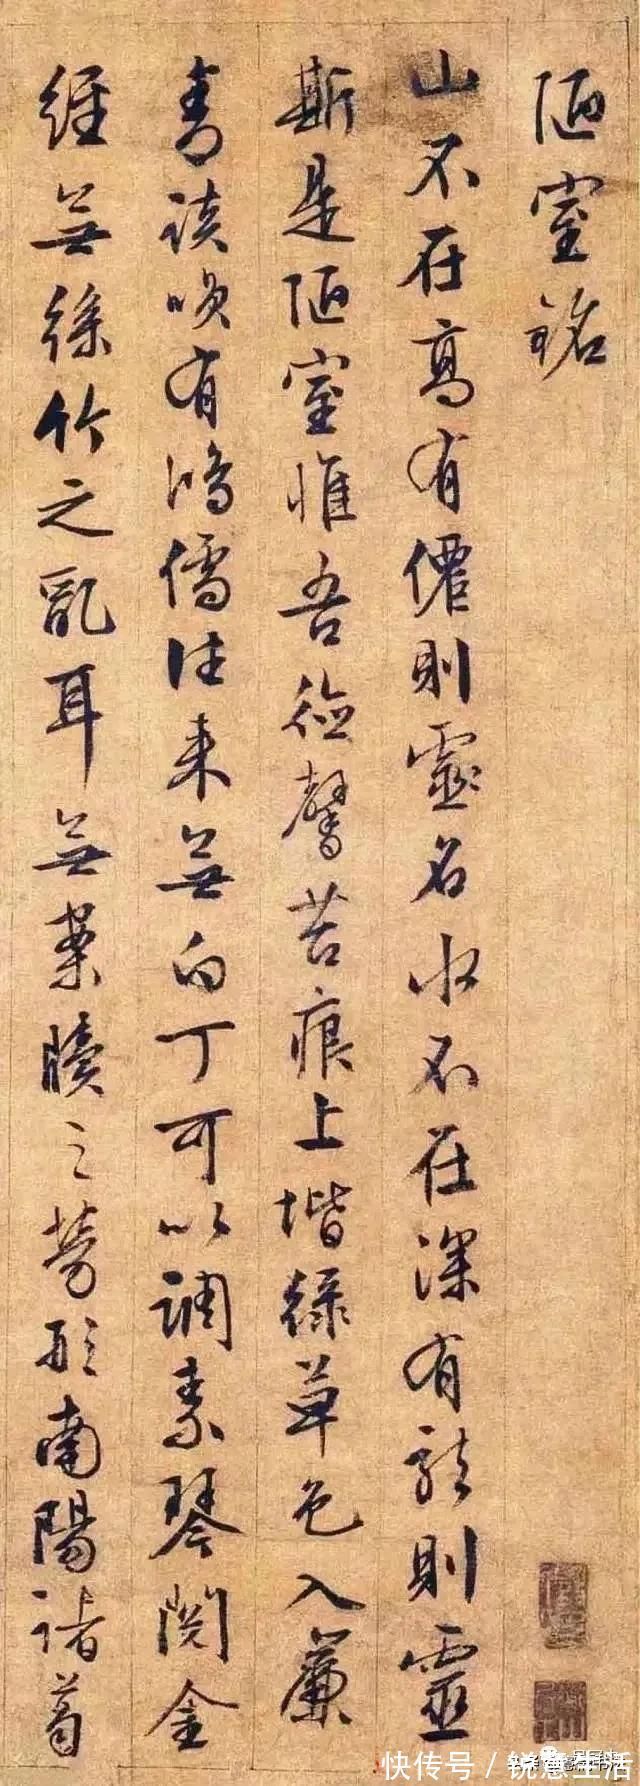 陋室銘
山不在高有僊則靈名水不在深有龍則靈
斯是陋室惟吾德馨苔痕上堦綠草色入簾
青談咲有鴻儒往来無白丁可以調素琴閱金
經無絲竹之亂耳無案牘之勞形南陽諸葛
快传号/锐意生活